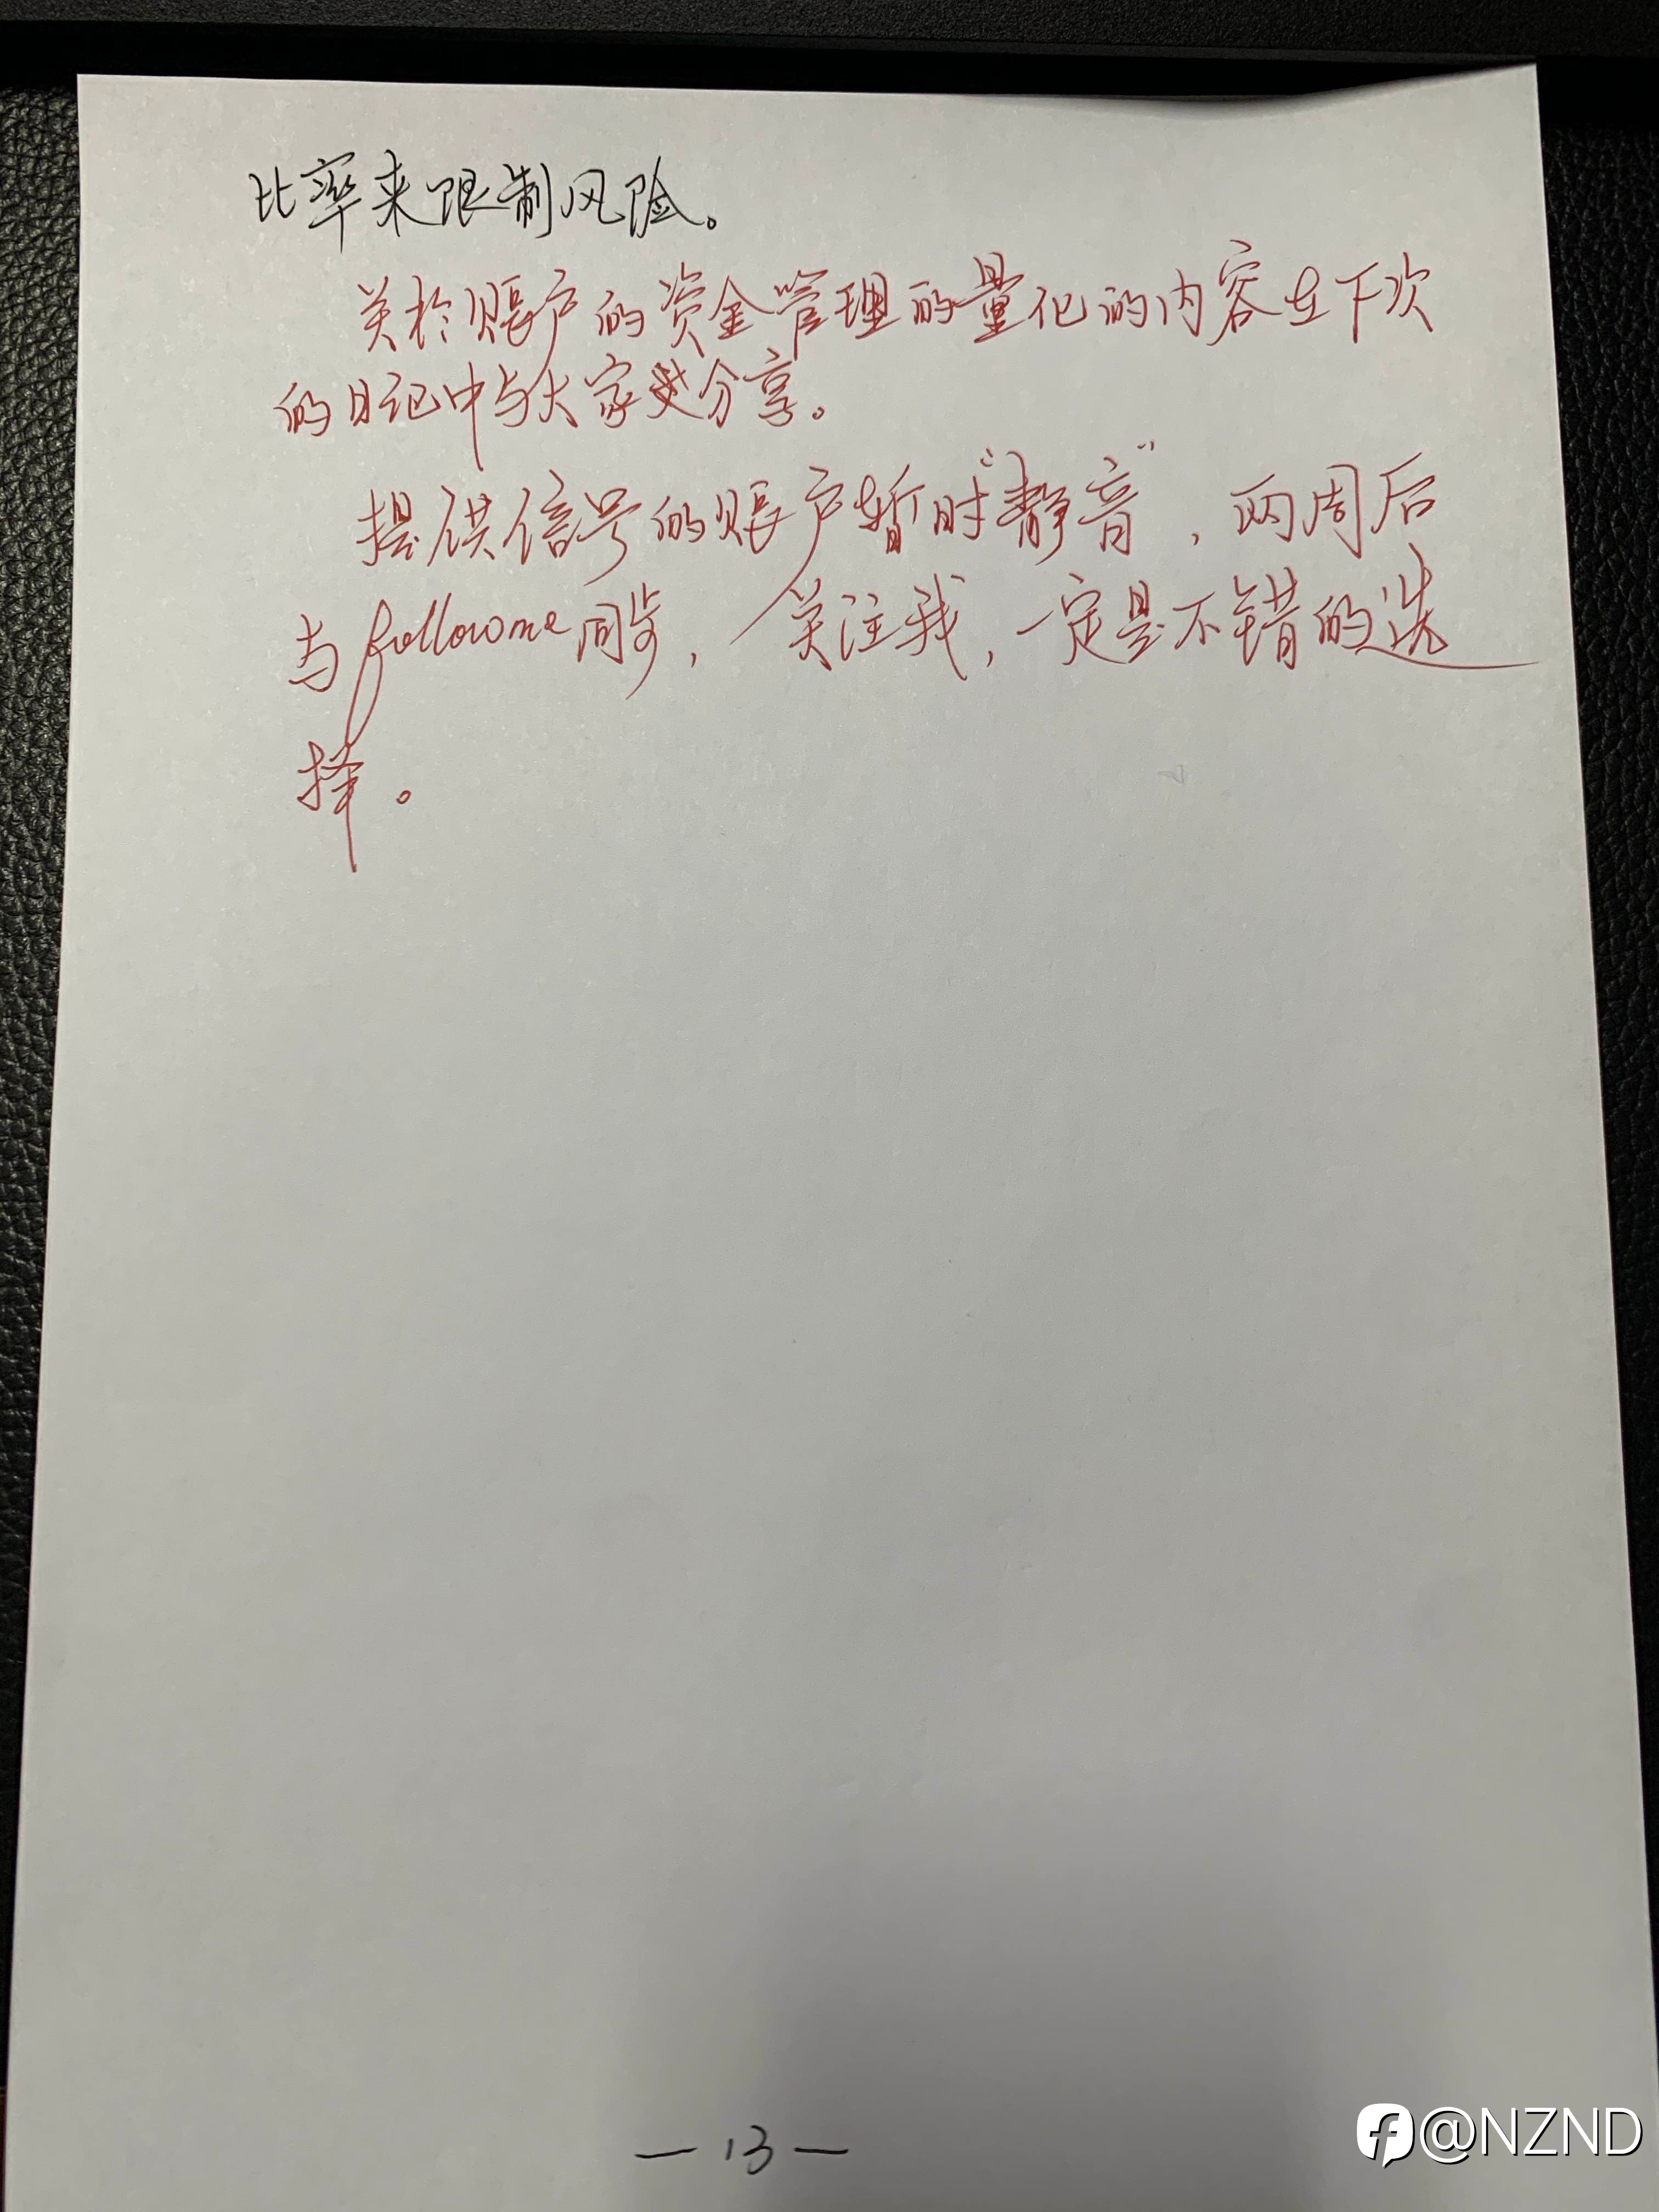 比率来限制风险。
关於账户的资金管理的量化的内容在下次
的日记中与大家分享。
提供信号的账户暂时“静音”，两周后
与followme同步，关注我，一定是不错的选
择。
—13—
@NZND